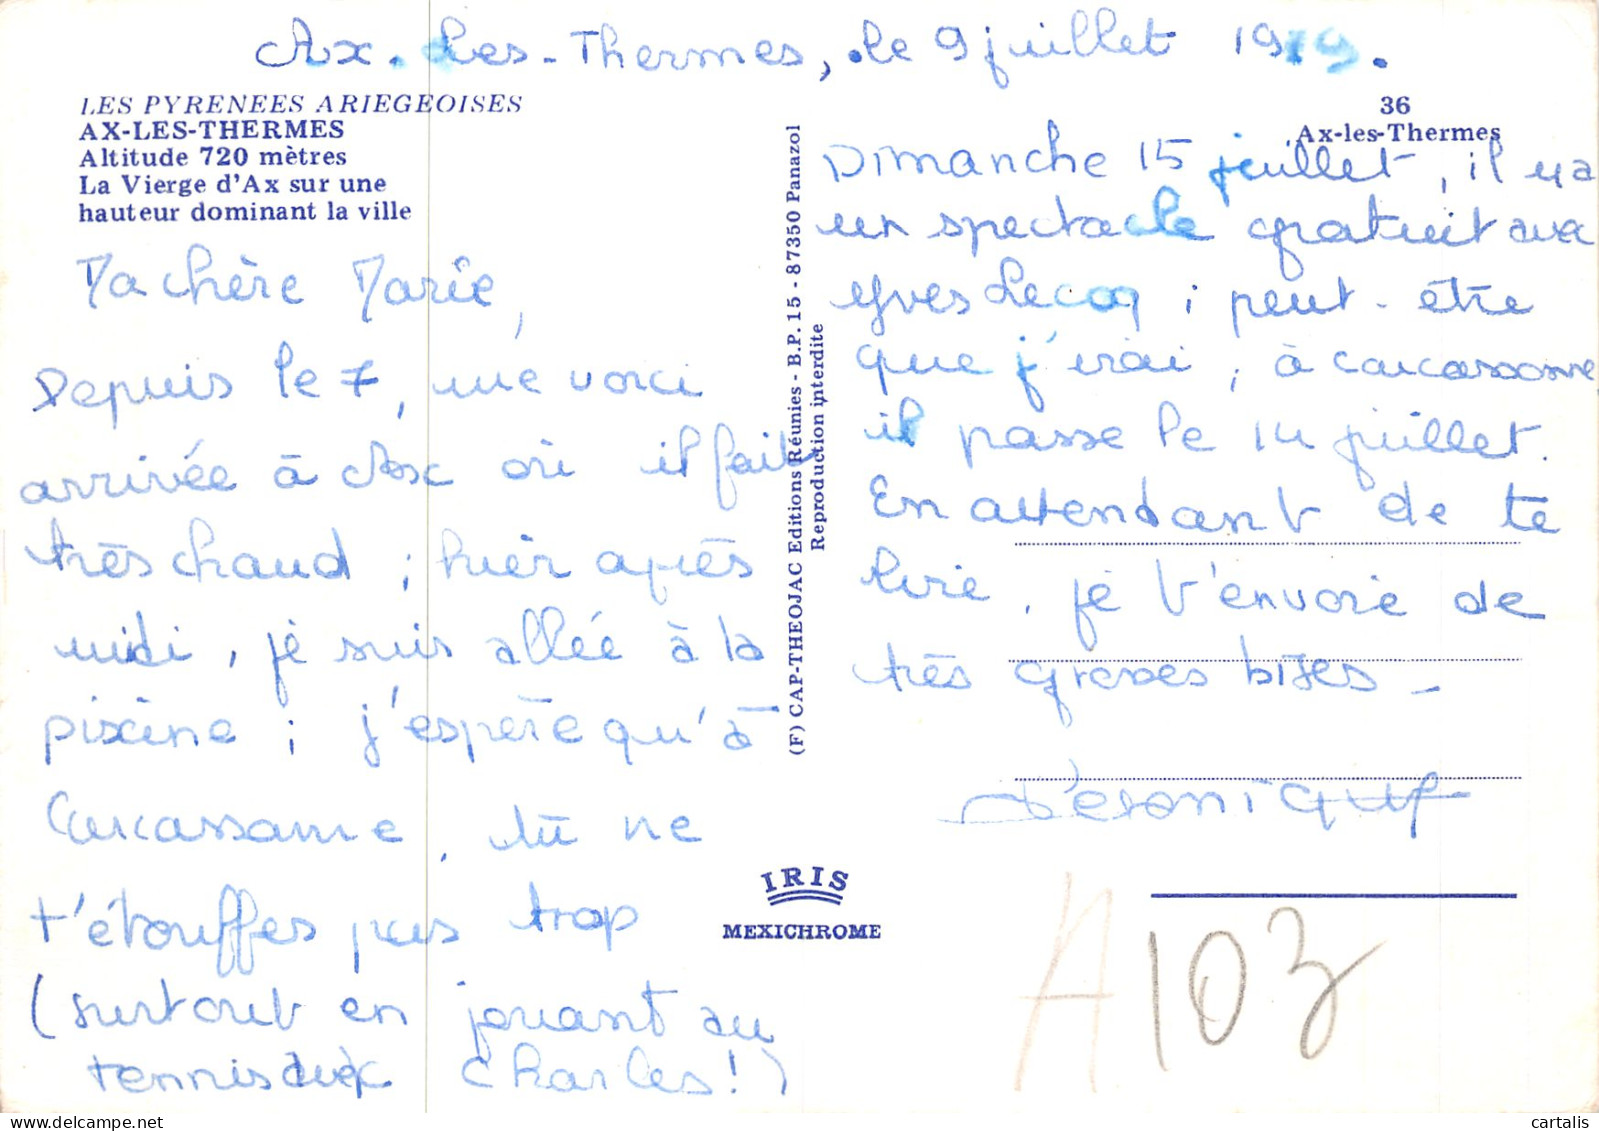 Ax-Les-Thermes, le 9 juillet 19
LES PYRENEES ARIEGEOISES
AX-LES-THERMES
Altitude 720 mètres
La Vierge d'Ax sur une
hauteur dominant la ville
Ma chère Marie,
Depuis le 7, me voici
arrivée à Ax où il fait
très chaud ; hier après
midi, je suis allée à la
piscine ; j'espère qu'à
Carcassonne, tu ne
t'étouffes pas trop
(surtout en jouant au
tennis avec Charles !)
(F) CAP-THEOJAC Editions Réunies - B.P. 15 - 87350 Panazol
Reproduction interdite
IRIS
MEXICHROME
36
Ax-les-Thermes
Dimanche 15 juillet, il y a
un spectacle gratuit avec
Yves Lecoq ; peut-être
que j'irai ; à Carcassonne
il passe le 14 juillet.
En attendant de te
lire, je t'envoie de
très grosses bises -
Véronique
A103
cartalis